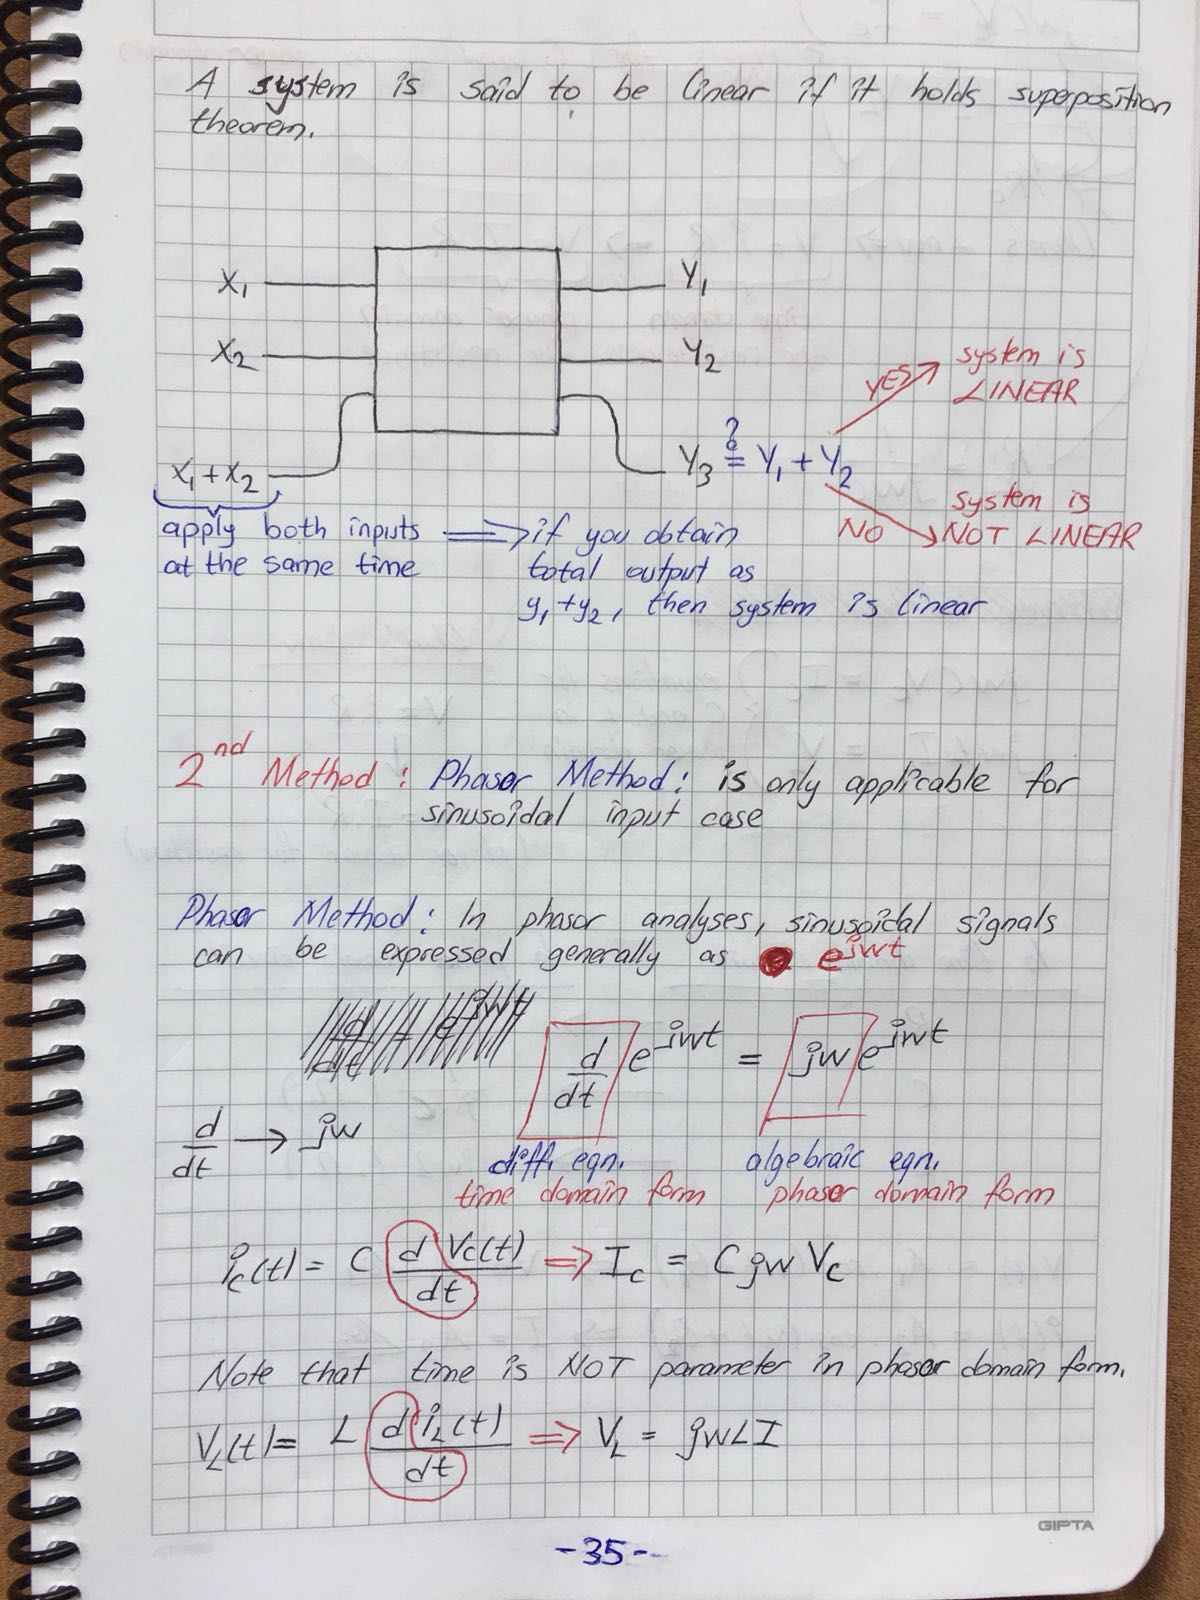 A system is said to be linear if it holds superposition
theorem.
X₁
Y₁
X₂
Y₂
YES
system is
LINEAR
X₁+X₂
Y₃ ≟ Y₁ + Y₂
NO
system is
NOT LINEAR
apply both inputs ⟹ if you obtain
at the same time total output as
y₁+y₂, then system is linear
2nd Method: Phasor Method: is only applicable for
sinusoidal input case
Phasor Method: In phasor analyses, sinusoidal signals
can be expressed generally as e^jwt
d/dt e^jwt = jw e^jwt
d/dt → jw
diff. eqn. algebraic eqn.
time domain form phasor domain form
ic(t) = C d Vc(t)/dt ⟹ Ic = C jw Vc
Note that time is NOT parameter in phasor domain form.
VL(t) = L d iL(t)/dt ⟹ VL = jwLI
GIPTA
-35--